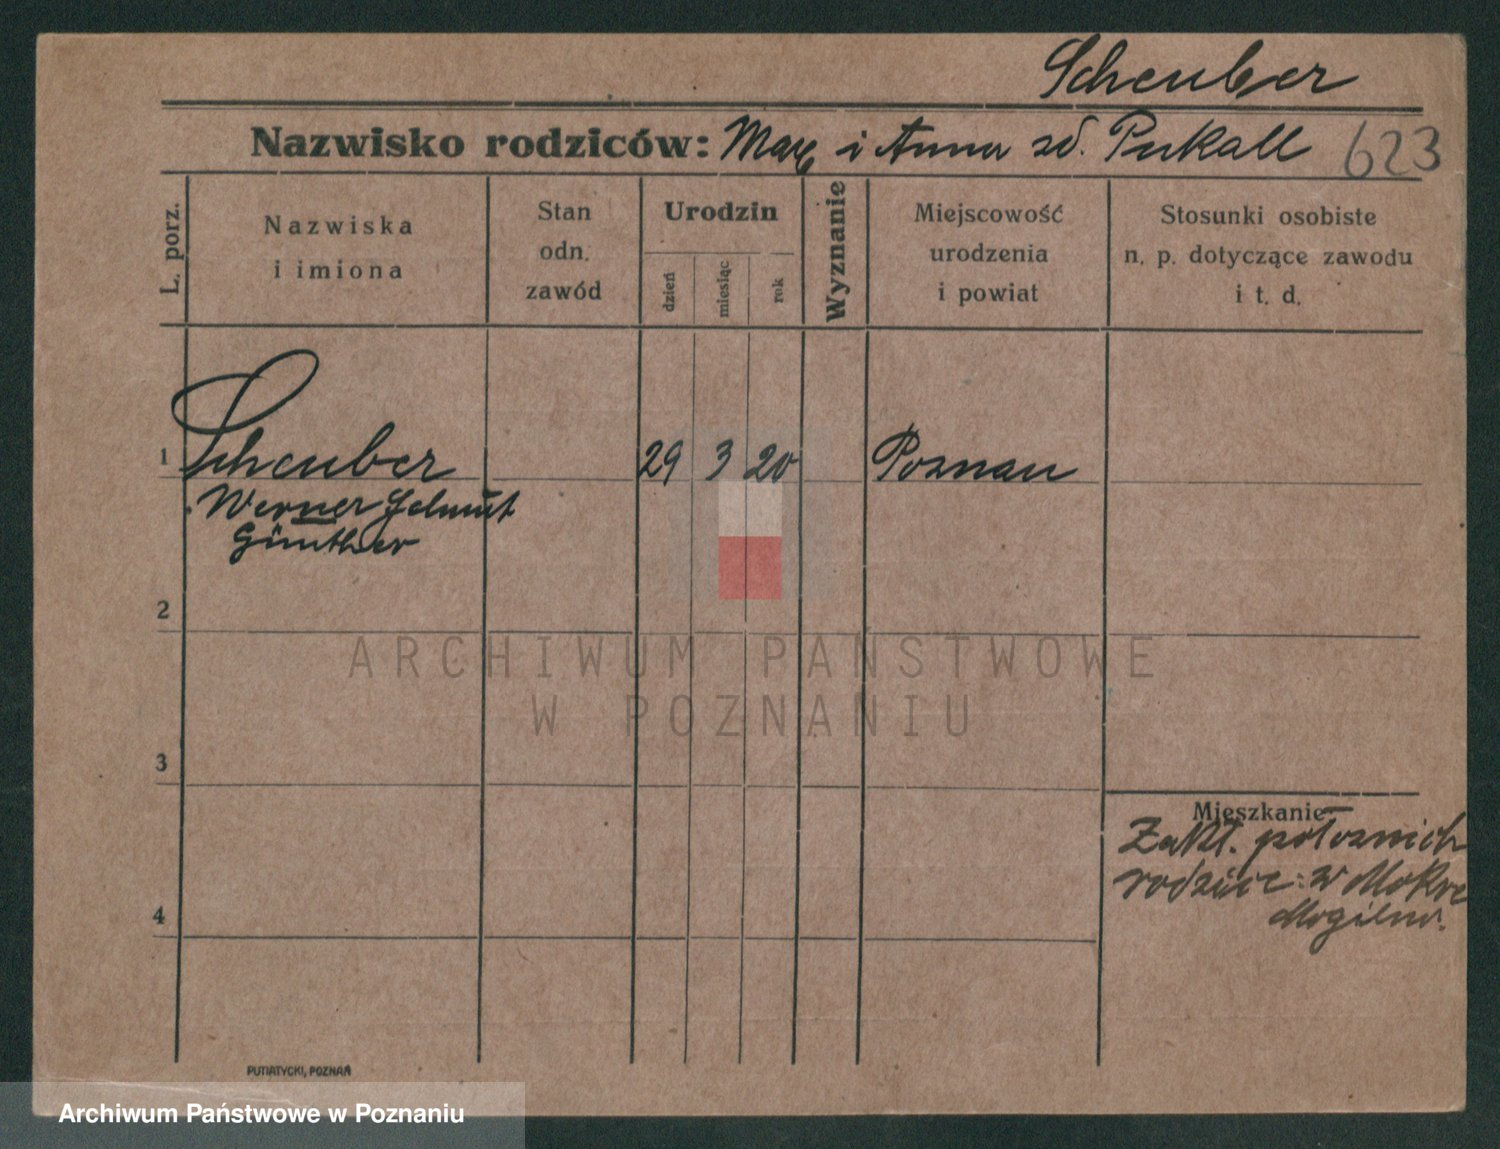 Scheuber
Nazwisko rodziców: Max i Anna zd. Pukall 623
L. porz.
Nazwiska
i imiona
Stan
odn.
zawód
Urodzin
dzień
miesiąc
rok
Wyznanie
Miejscowość
urodzenia
i powiat
Stosunki osobiste
n. p. dotyczące zawodu
i t. d.
1 Scheuber 29 3 20 Poznań
Werner Helmut
Günther
2
ARCHIWUM PAŃSTWOWE
W POZNANIU
3
Mieszkanie
Zakł. położnich
rodzice: w Mokre
4
Mogilno.
PUTIATYCKI, POZNAŃ
Archiwum Państwowe w Poznaniu